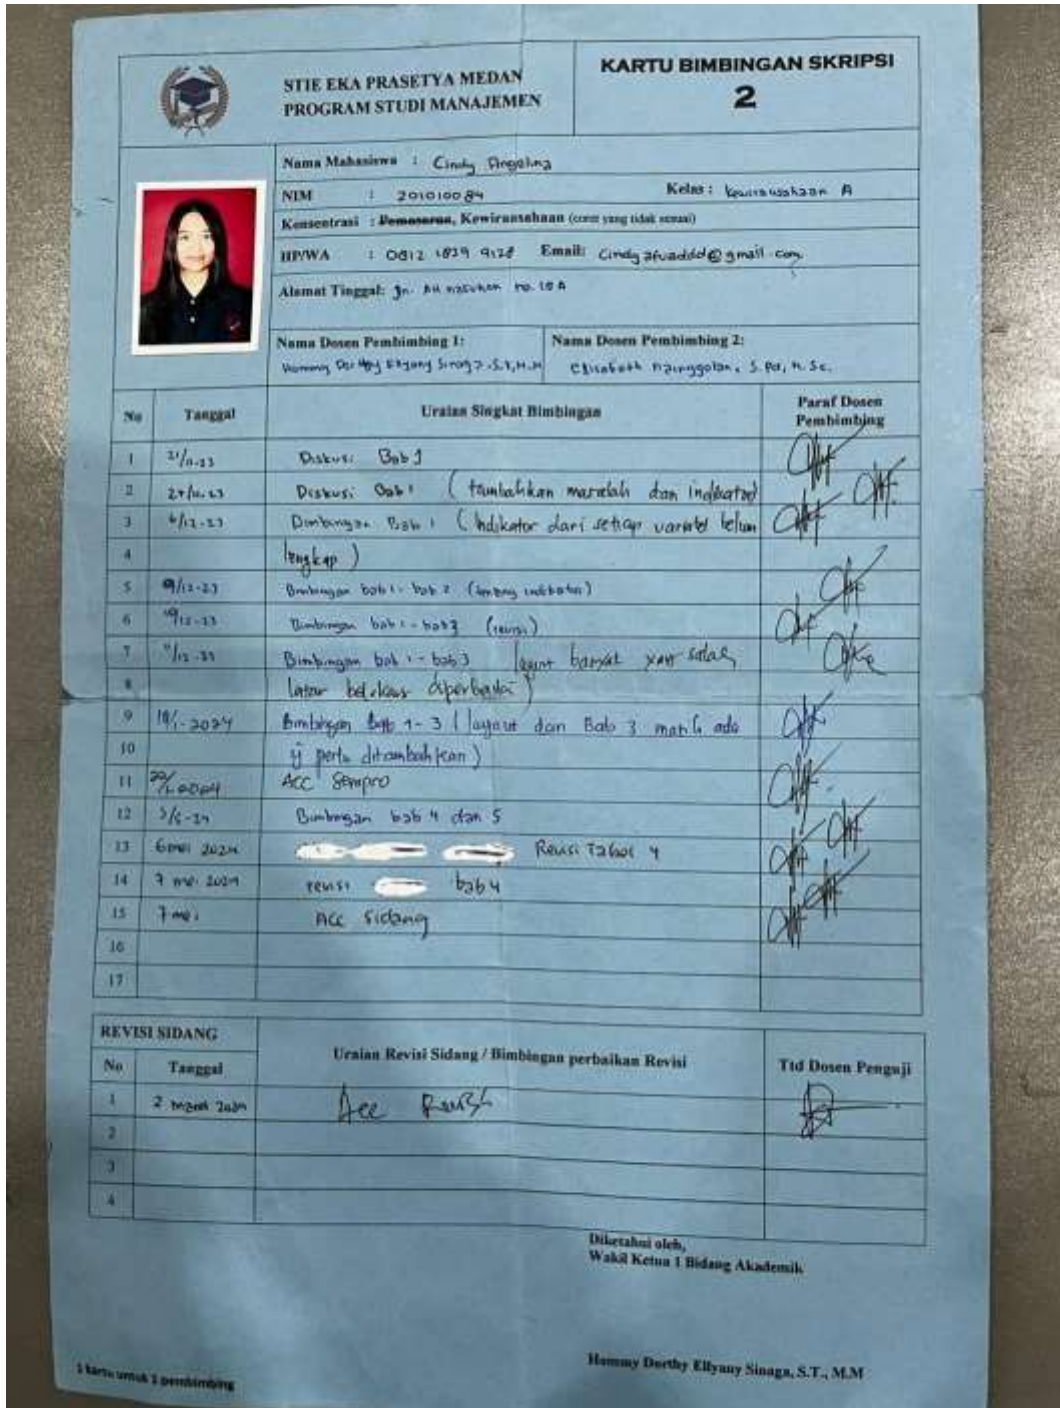 STIE EKA PRASETYA MEDAN
PROGRAM STUDI MANAJEMEN
KARTU BIMBINGAN SKRIPSI
2
Nama Mahasiswa : Cindy Angelina
NIM : 201010084 Kelas : kewirausahaan A
Konsentrasi : Pemasaran, Kewirausahaan (coret yang tidak sesuai)
HP/WA : 0812 1829 9128 Email: Cindyafuaddd@gmail.com
Alamat Tinggal: Jn. AH nasution no. 18 A
Nama Dosen Pembimbing 1: Nama Dosen Pembimbing 2:
Ellyany Sinaga .S.T,M.M Elisabeth Nainggolan, S.Pd, M.Sc.
No Tanggal Uraian Singkat Bimbingan Paraf Dosen Pembimbing
1 21/11-23 Diskusi Bab 1
2 24/11-23 Diskusi Bab 1 (tambahkan masalah dan indikator)
3 6/12-23 Bimbingan Bab 1 (Indikator dari setiap variabel belum
4 lengkap)
5 9/12-23 Bimbingan bab 1 - bab 2 (tentang indikator)
6 10/12-23 Bimbingan bab 1 - bab3 (revisi)
7 11/12-23 Bimbingan bab 1 - bab 3 layout banyak salah,
8 latar belakang diperbaiki)
9 18/1-2024 Bimbingan Bab 1-3 (layout dan Bab 3 masih ada
10 yg perlu ditambahkan)
11 22/1 2024 ACC Sempro
12 3/5-24 Bimbingan bab 4 dan 5
13 6 mei 2024 Revisi Tabel 4
14 7 mei 2024 revisi bab 4
15 7 mei ACC Sidang
16
17
REVISI SIDANG
No Tanggal Uraian Revisi Sidang / Bimbingan perbaikan Revisi Ttd Dosen Penguji
1 2 2024 Acc Revisi
2
3
4
Diketahui oleh,
Wakil Ketua 1 Bidang Akademik
Hommy Dorthy Ellyany Sinaga, S.T., M.M
1 kartu untuk 1 pembimbing